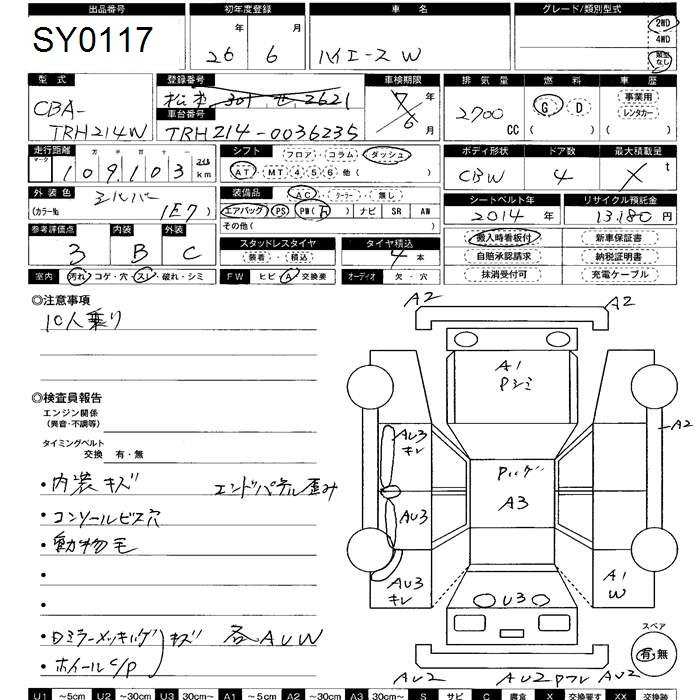 出品番号 初年度登録 車名 グレード/類別型式
SY0117 26年 6月 ハイエース W 2WD
4WD
類型なし
型式 登録番号 車検期限 排気量 燃料 車歴
CBA-TRH214W 松本 301 せ 2621 7年 6月 2700CC G D ( ) 事業用
レンタカー
( )
車台番号
TRH214-0036235
走行距離 シフト フロア・コラム・ダッシュ ボディ形状 ドア数 最大積載量
マーク 十万 万 千 百 十 一
109103 km AT・MT 4 5 6 他( ) CBW 4 t
外装色 シルバー 装備品 AC・クーラー・無し シートベルト年 リサイクル預託金
(カラーNo 1E7) エアバッグ PS PW ナビ SR AW 2014年 13,180円
その他( )
参考評価点 内装 外装 スタッドレスタイヤ タイヤ積込 搬入時看板付 新車保証書
3 B C 装着・積込 4本 自賠承認請求 納税証明書
室内 汚れ・コゲ・穴・スレ・破れ・シミ FW ヒビ・A・交換要 オーディオ 欠・穴 抹消受付可 充電ケーブル
◎注意事項
10人乗り
◎検査員報告
エンジン関係
(異音・不調等)
タイミングベルト
交換 有・無
・内装キズ エンドパネル歪み
・コンソールビス穴
・動物毛
・
・
・Dミラーメッキングキズ 各AUW
・ホイールC/P
A2 A2
A1
Pシミ
A2
AU3
キレ
A3
AU3
AU3
キレ
U3
A1
W
AU2 AU2 Pフレ AU2
スペア
有・無
U1 ~5cm U2 ~30cm U3 30cm~ A1 ~5cm A2 ~30cm A3 30cm~ S サビ C 腐食 X 交換要す XX 交換跡